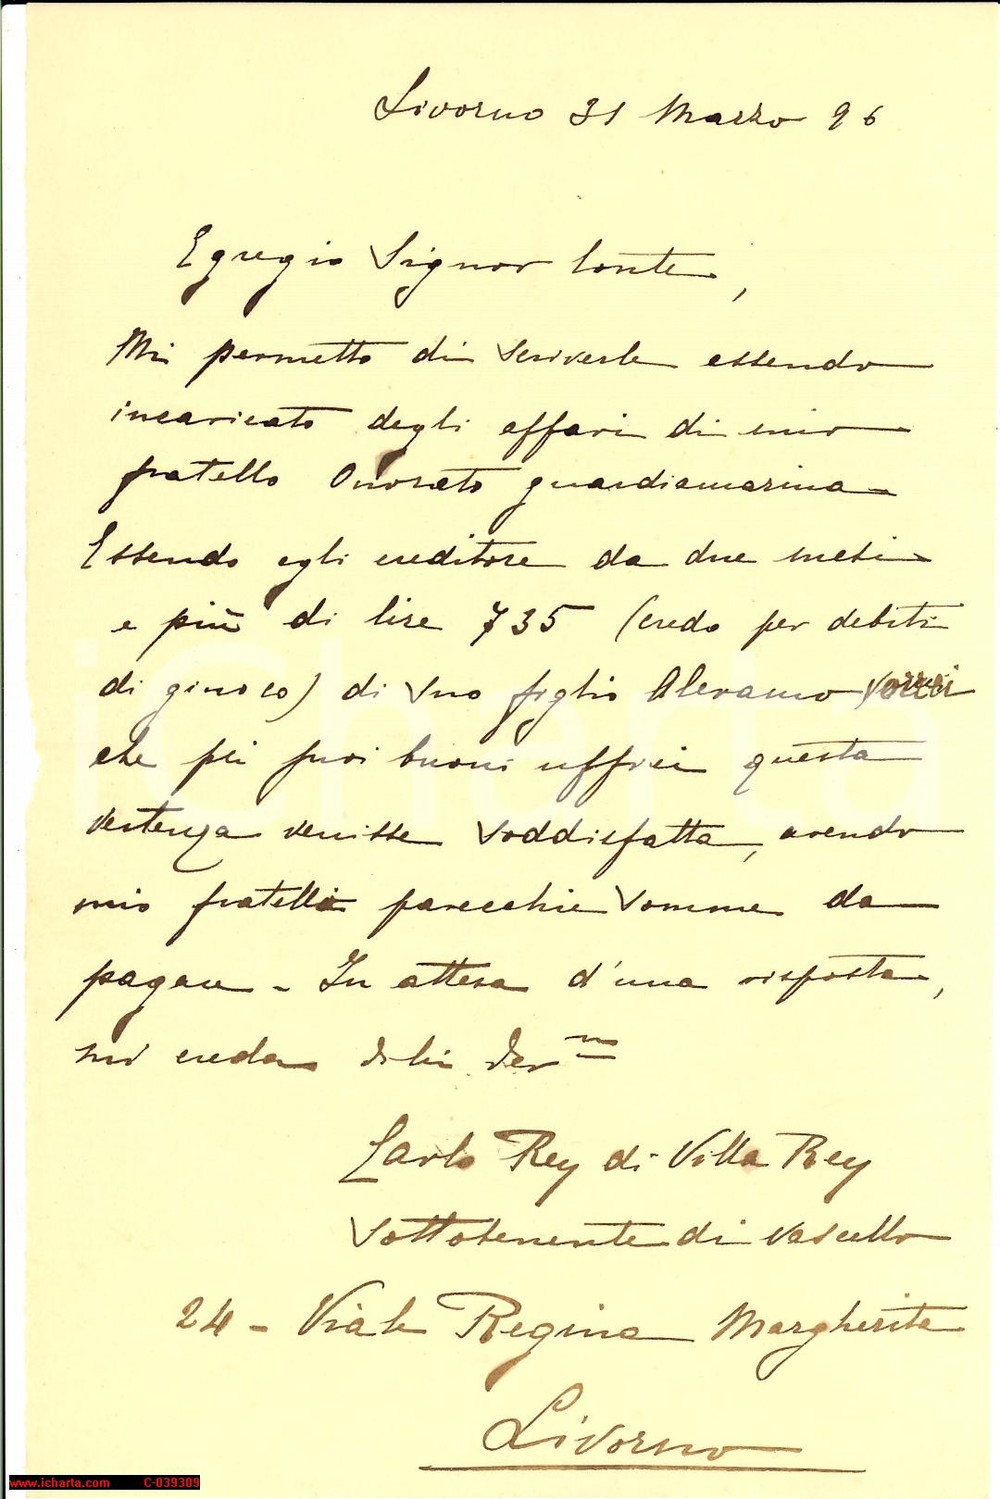 Livorno 31 Marzo 96
Egregio Signor Conte,
Mi permetto di scriverle essendo
incaricato degli affari di mio
fratello Onorato guardiamarina
Essendo egli creditore da due mesi
e più di lire 735 (credo per debiti
di giuoco) di suo figlio Aleramo vorrei
che pei suoi buoni uffici questa
vertenza venisse soddisfatta, avendo
mio fratello parecchie somme da
pagare - In attesa d'una risposta,
mi creda
Carlo Rey di Villa Rey
Sottotenente di vascello
24 - Viale Regina Margherita
Livorno
iCharta
www.icharta.com C-039309